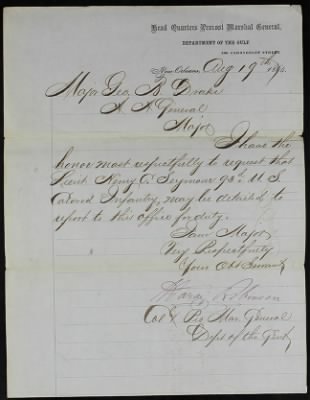 Head Quarters Provost Marshal General,
DEPARTMENT OF THE GULF
CARONDELET STREET
New Orleans, Aug 19th 186
Major Geo. B Drake
A. A General
Major
I have the
honor most respectfully to request that
Lieut Henry C. Seymour 93d U S
Colored Infantry, may be detailed to
report to this office for duty.
I am Major
Very Respectfully
Your Obt Servant
Harai Robinson
Col & Pro Mar General
Dept of the Gulf